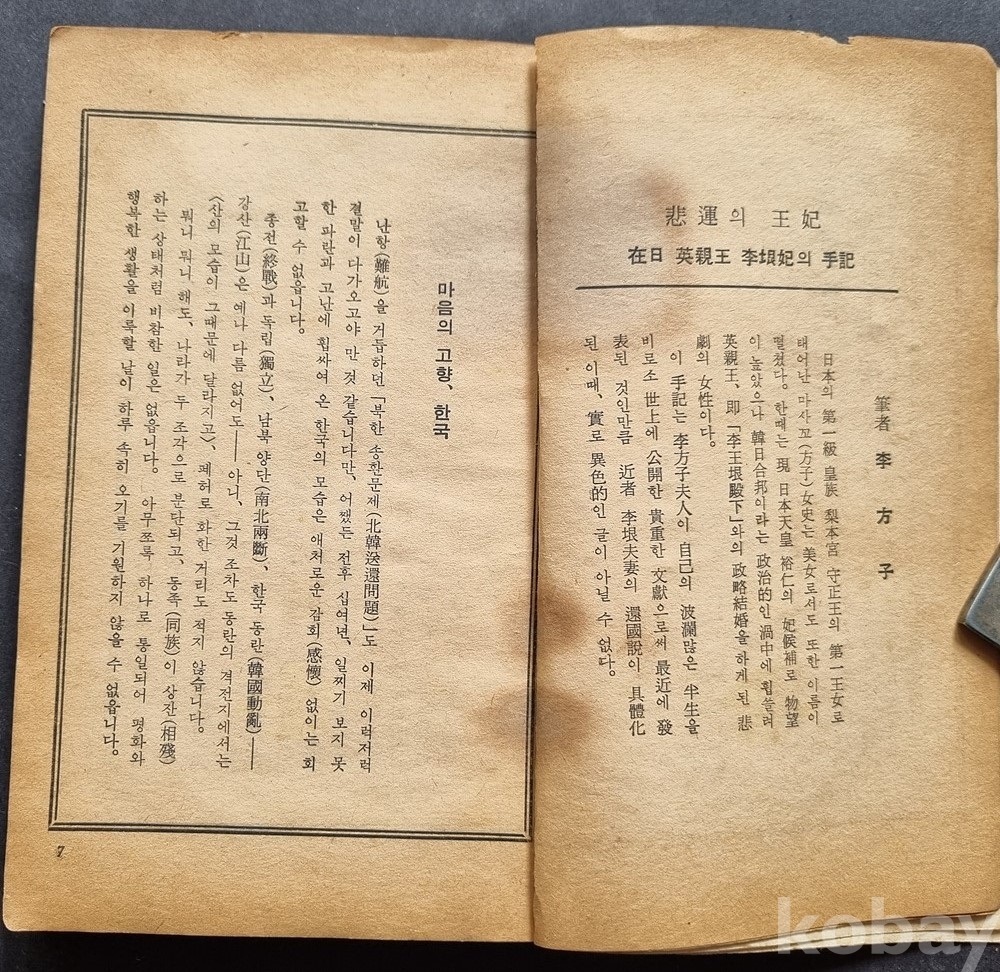 悲運의 王妃
在日 英親王 李垠妃의 手記
筆者 李方子
日本의 第一級 皇族 梨本宮 守正王의 第一王女로
태어난 마사꼬(方子)女史는 美女로서도 또한 이름이
떨쳤다。한때는 現 日本天皇 裕仁의 妃候補로 物望
이 높았으나 韓日合邦이라는 政治的인 渦中에 휩쓸려
英親王、即「李王垠殿下」와의 政略結婚을 하게 된 悲
劇의 女性이다。
이 手記는 李方子夫人이 自己의 波瀾많은 半生을
비로소 世上에 公開한 貴重한 文獻으로써 最近에 發
表된 것인만큼 近者 李垠夫妻의 還國說이 具體化
된 이때、實로 異色的인 글이 아닐 수 없다。
마음의 고향、한국
난항(難航)을 거듭하던「북한 송환문제(北韓送還問題)」도 이제 이럭저럭
결말이 다가오고야 만 것 같습니다만、어쨌든 전후 십여년、일찌기 보지 못
한 파란과 고난에 휩싸여 온 한국의 모습은 애처로운 감회(感懷) 없이는 회
고할 수 없읍니다。
종전(終戰)과 독립(獨立)、남북 양단(南北兩斷)、한국 동란(韓國動亂)──
강산(江山)은 예나 다름 없어도── 아니、그것 조차도 동란의 격전지에서는
(산의 모습이 그때문에 달라지고)、폐허로 화한 거리도 적지 않습니다。
뭐니 뭐니 해도、나라가 두 조각으로 분단되고、동족(同族)이 상잔(相殘)
하는 상태처럼 비참한 일은 없읍니다。 아무쪼록 하나로 통일되어 평화와
행복한 생활을 이룩할 날이 하루 속히 오기를 기원하지 않을 수 없읍니다。
7
kobay